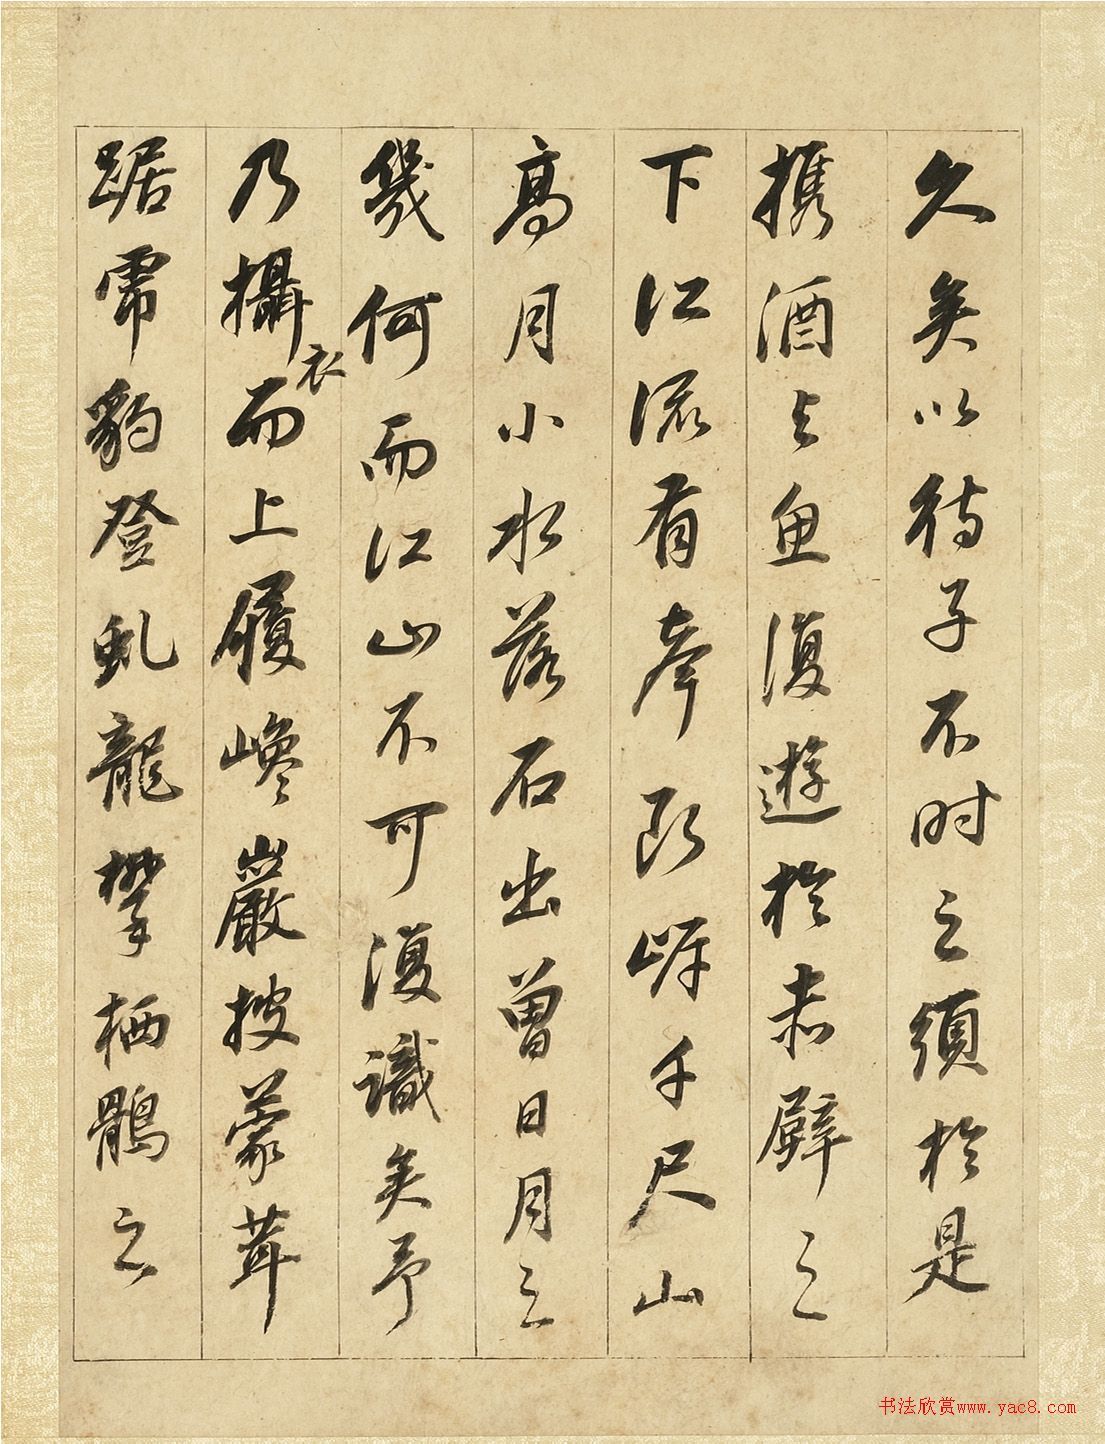 久矣以待子不时之須於是
携酒与魚復遊於赤壁之
下江流有聲断岸千尺山
高月小水落石出曽日月之
幾何而江山不可復識矣予
乃攝衣而上履巉巖披蒙茸
踞虎豹登虬龍攀栖鶻之
书法欣赏www.yac8.com